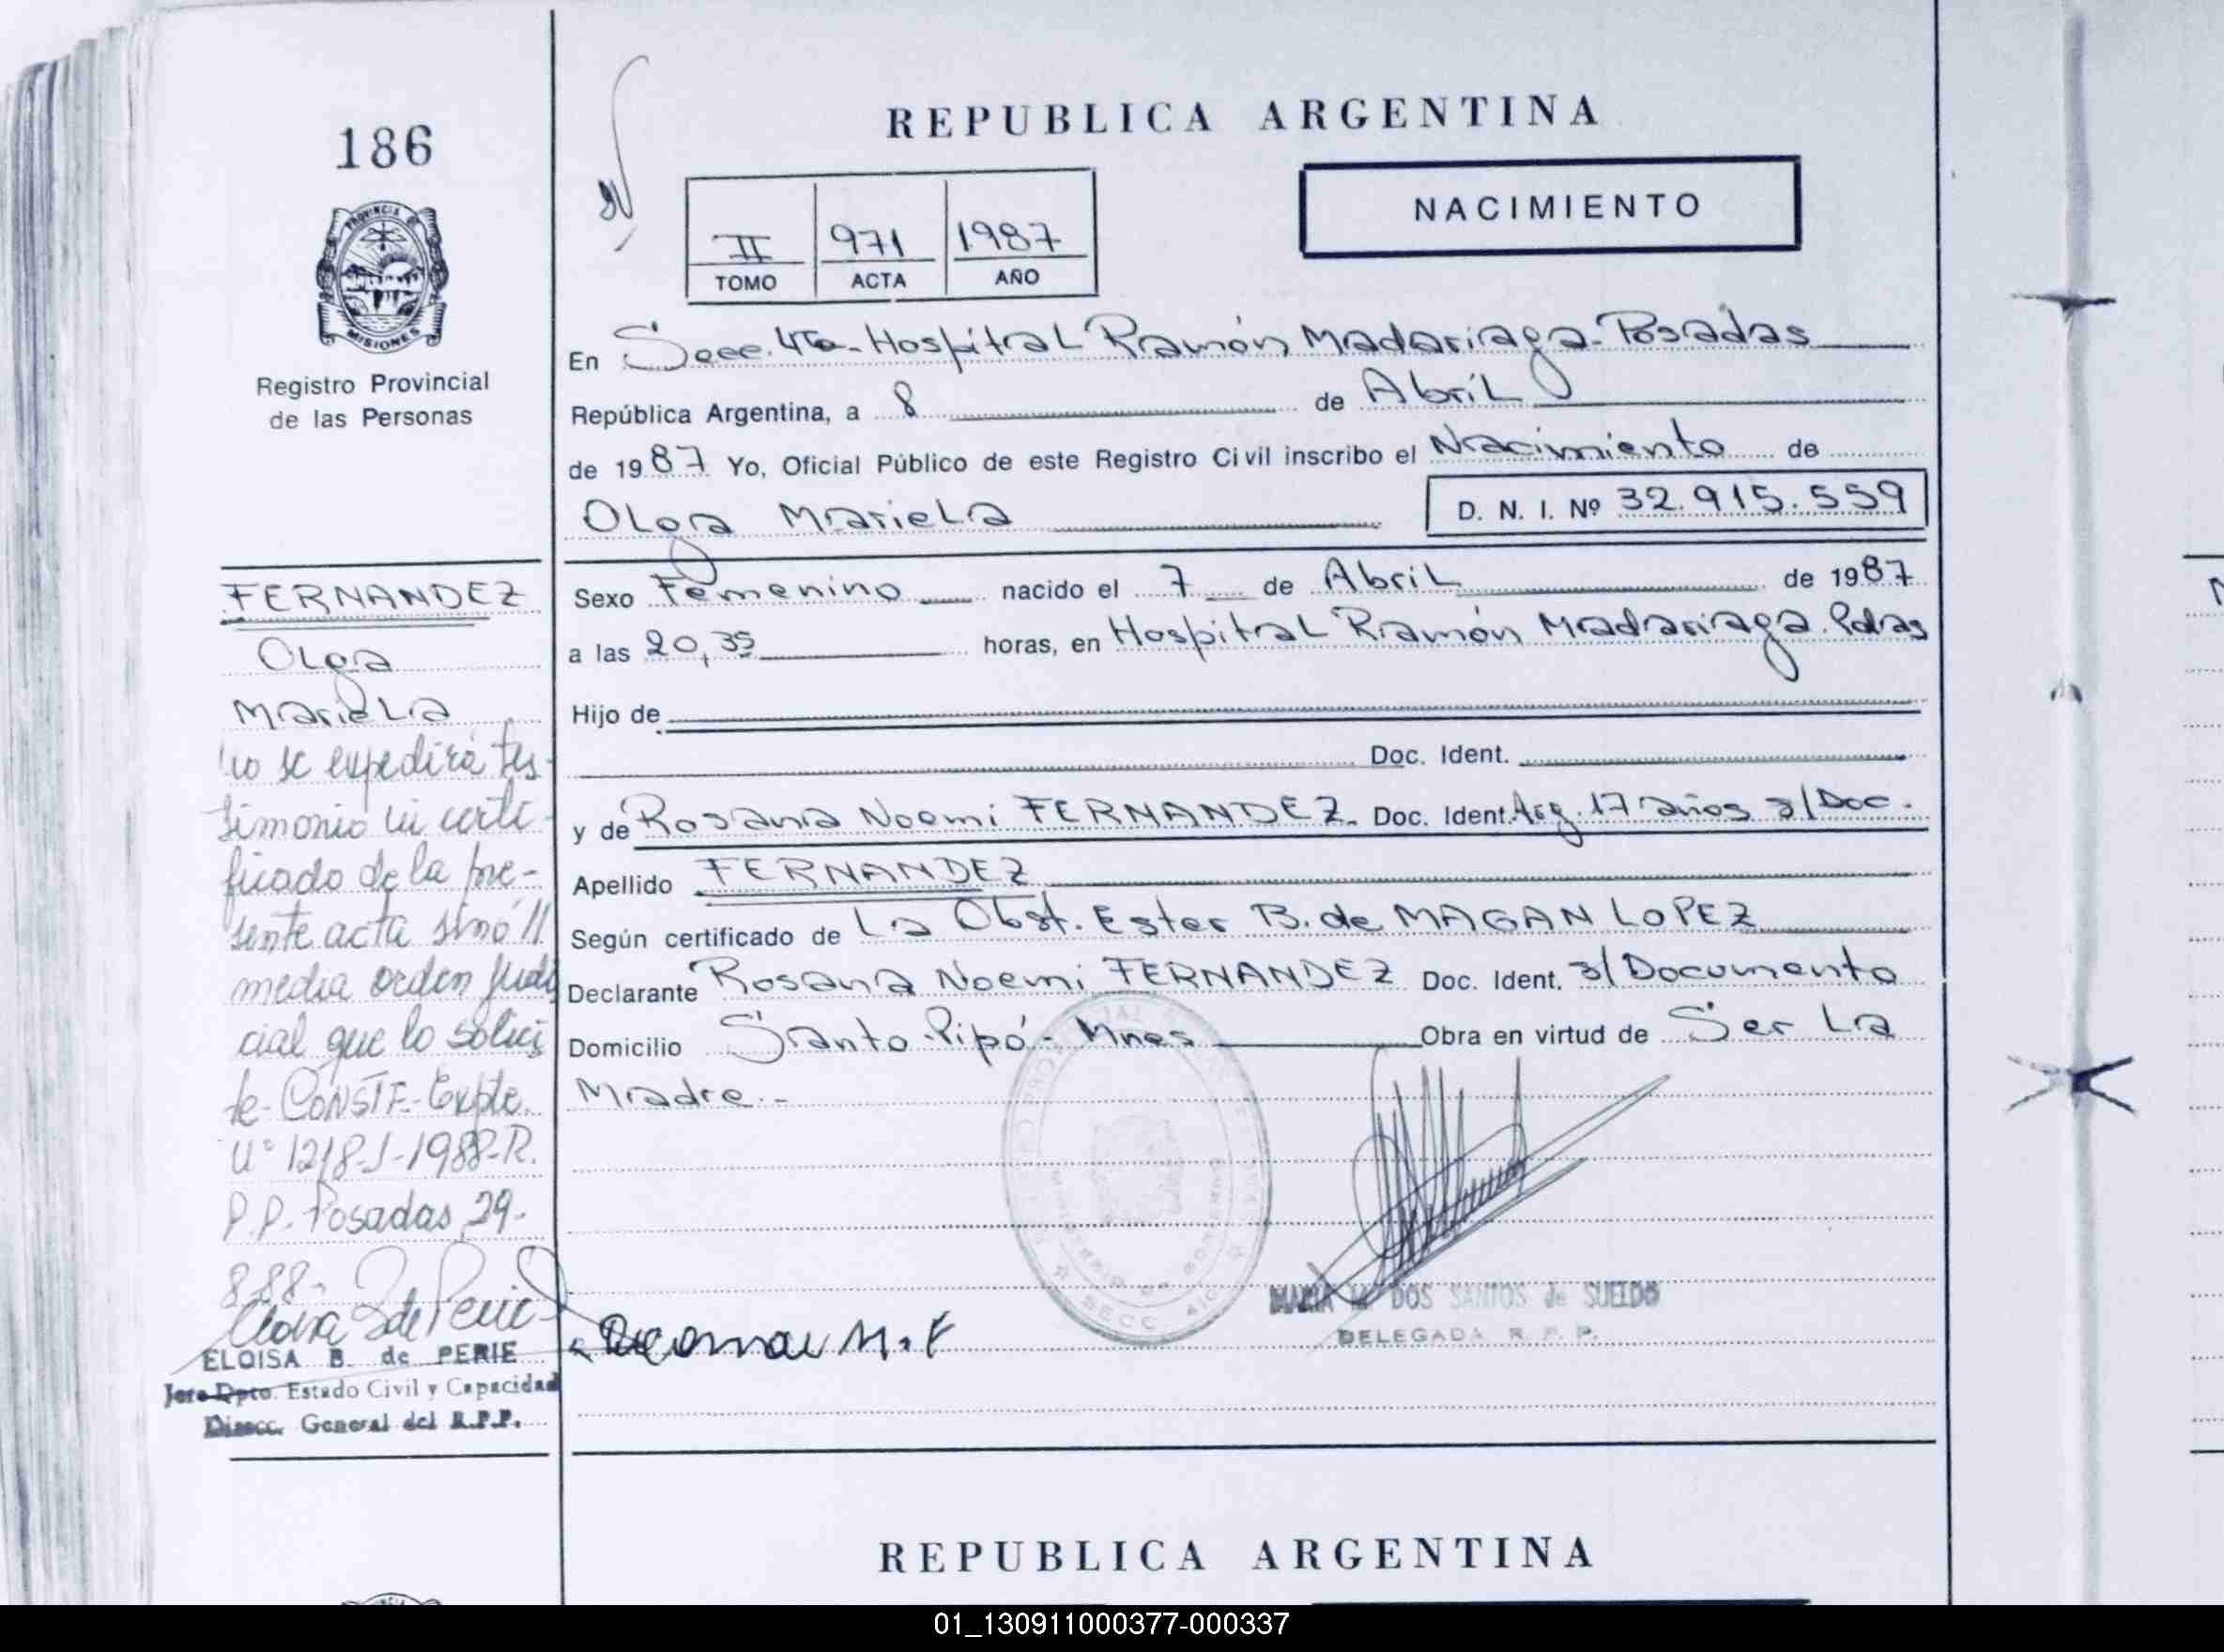 186
PROVINCIA DE
MISIONES
Registro Provincial
de las Personas
FERNANDEZ
Olga
Mariela
No se expedirá tes-
timonio ni certi-
ficado de la pre-
sente acta sinó //
media orden judi
cial que lo solici
te- CONSTE- Expte.
Nº 1218-J-1988-R.
P.P. Posadas, 29-
8-88-
ELOISA B. de PERIE
Jefe Dpto. Estado Civil y Capacidad
Direcc. General del R.P.P.
REPUBLICA ARGENTINA
II 971 1987
TOMO ACTA AÑO
NACIMIENTO
En Secc. 4ta- Hospital Ramón Madariaga- Posadas
República Argentina, a 8 de Abril
de 1987 Yo, Oficial Público de este Registro Civil inscribo el Nacimiento de
Olga Mariela D. N. I. Nº 32.915.559
Sexo Femenino nacido el 7 de Abril de 1987
a las 20,35 horas, en Hospital Ramón Madariaga. Pdas
Hijo de
Doc. Ident.
y de Rosana Noemi FERNANDEZ. Doc. Ident. Arg. 17 años s/Doc.
Apellido FERNANDEZ
Según certificado de La Obst. Ester B. de MAGAN LOPEZ
Declarante Rosana Noemi FERNANDEZ Doc. Ident. s/Documento
Domicilio Santo Pipó- Mnes Obra en virtud de Ser La
Madre.-
MARIA M. DOS SANTOS de SUELDO
DELEGADA R. P. P.
REPUBLICA ARGENTINA
01_130911000377-000337